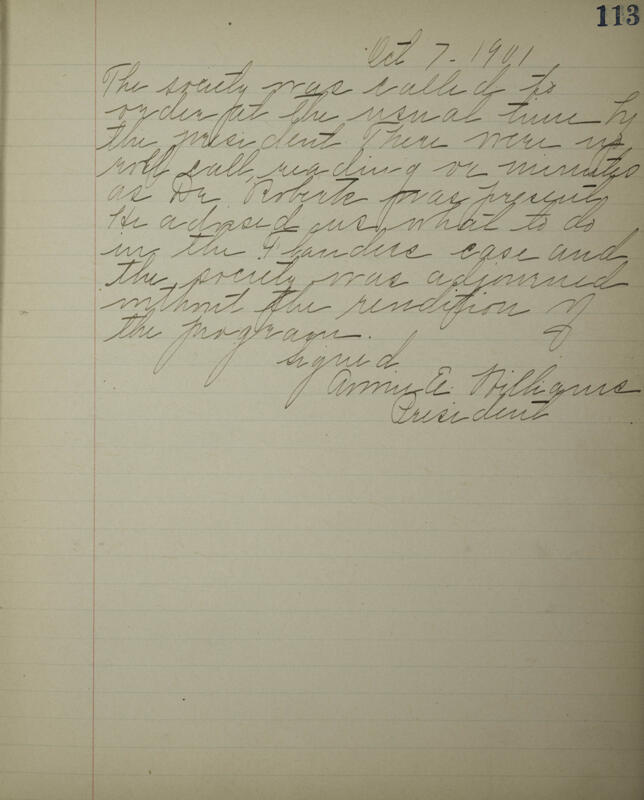 113
Oct 7 - 1901
The society was called to
order at the usual time by
the president There were no
roll call, reading or minutes
as Dr. Roberts was present
He advised us what to do
in the Flanders case and
the society was adjourned
without the rendition of
the program.
Signed
Annie E. Williams
President